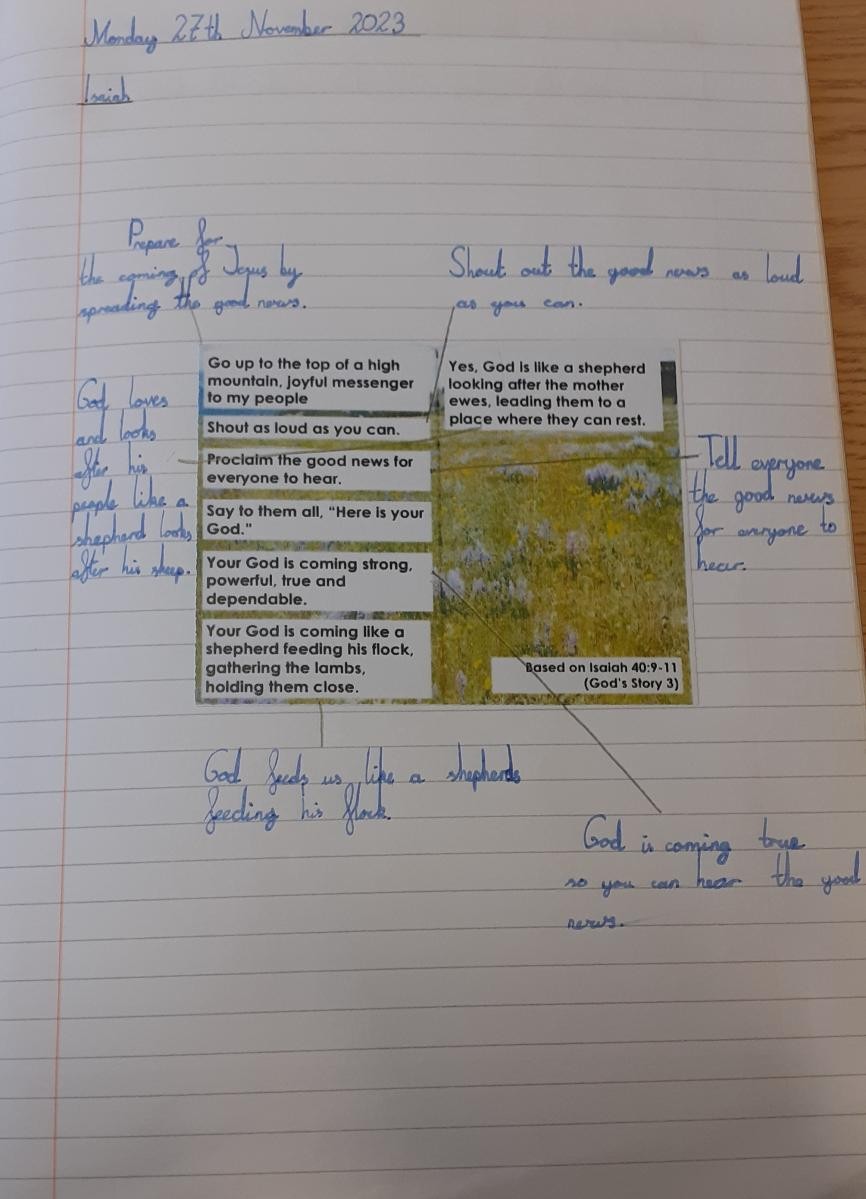 Monday 27th November 2023
Isaiah
Prepare for
the coming of Jesus by
spreading the good news.
Shout out the good news as loud
as you can.
God loves
and looks
after his
people like a
shepherd looks
after his sheep.
Go up to the top of a high
mountain, joyful messenger
to my people
Shout as loud as you can.
Proclaim the good news for
everyone to hear.
Say to them all, "Here is your
God."
Your God is coming strong,
powerful, true and
dependable.
Your God is coming like a
shepherd feeding his flock,
gathering the lambs,
holding them close.
Yes, God is like a shepherd
looking after the mother
ewes, leading them to a
place where they can rest.
Based on Isaiah 40:9-11
(God's Story 3)
Tell everyone
the good news
for everyone to
hear.
God feeds us like a shepherds
feeding his flock.
God is coming true
so you can hear the good
news.